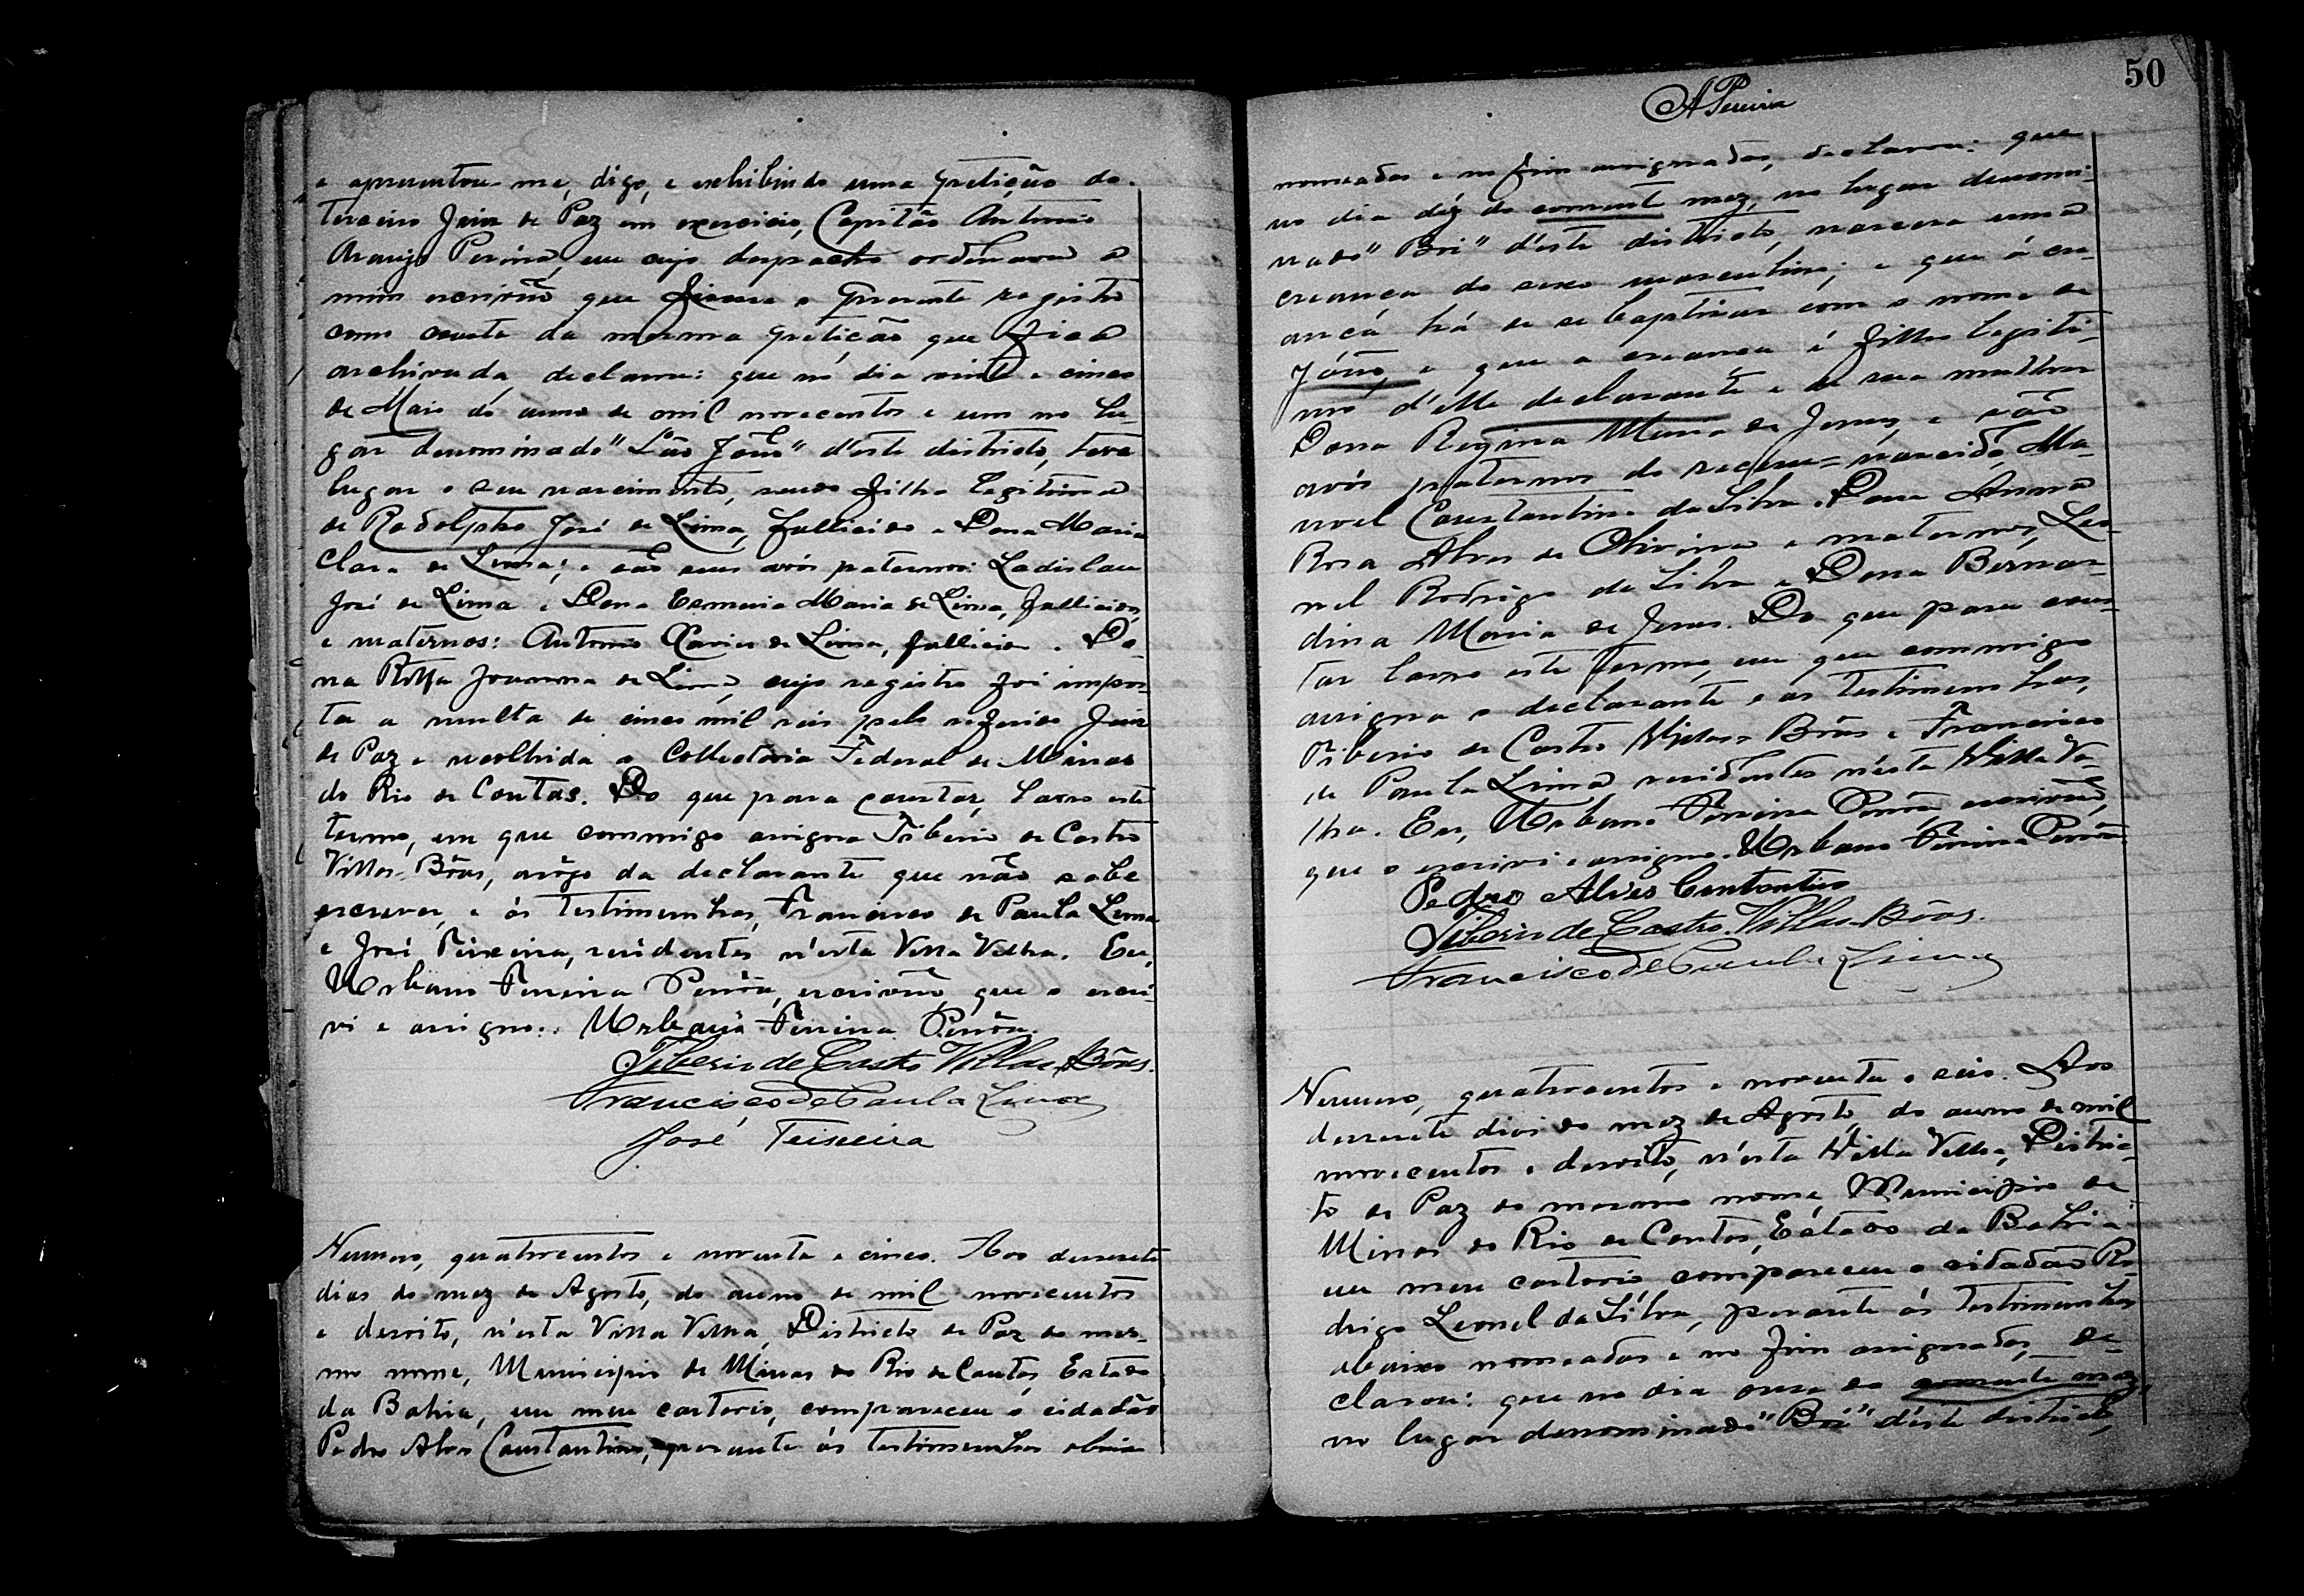 e apresentou-me, digo, e exhibindo uma petição do
terceiro Juiz de Paz em exercicio, Capitão Antonio
Araujo Pereira, em cujo despacho ordenava a
mim escrivão que fizesse o presente registro
como consta da mesma petição que fica
archivada, declarou: que no dia vinte e cinco
de Maio do anno de mil novecentos e um no lu-
gar denominado "São João" d'este districto, teve
lugar o seu nascimento, sendo filha legitima
de Rodolpho José de Lima, fallicido e Dona Maria
Clara de Lima; e são seus avós paternos: Ladislau
José de Lima e Dona Maria de Lima, fallicidos,
e maternos: Antonio Xavier de Lima, fallicido e Do-
na Joanna de Lima, cujo registro foi impos-
ta a multa de cinco mil reis pelo referido Juiz
de Paz e recolhida a Collectoria Federal de Minas
do Rio de Contas. Do que para constar, lavro este
termo, em que commigo assigna Tiberio de Castro
Villas-Bôas, arôgo da declarante que não sabe
escrever, e ás testimunhas, Francisco de Paula Lima
e José Teixeira, residentes n'esta Villa Velha. Eu,
Urbano Pereira, escrivão, que o escri-
vi e assigno. Urbano Pereira
Tiberio de Castro Villas-Bôas.
Francisco de Paula Lima
José Teixeira
Numero, quatrocentos e noventa e cinco. Aos desesete
dias do mez de Agosto, do anno de mil novecentos
e desoito, n'esta Villa Velha, Districto de Paz do mes-
mo nome, Municipio de Minas do Rio de Contas, Estado
da Bahia, em meu cartorio, compareceu o cidadão
Pedro Alves Constantino, perante ás testimunhas abaixo
50
APereira
nomeadas e no fim assignadas, declarou: que
no dia déz do corrente mez, no lugar denomi-
nado "Boi" d'este districto, nascera uma
creança do sexo masculino; e que á cre-
ança há de se baptizar com o nome de
João, e que a creança é filho legiti-
mo d'elle declarante e de sua mulher
Dona Regina Maria de Jesus, e são
avós paternos do recem-nascido, Ma-
noel Constantino da Silva e Dona Anna
Rosa Alves de Oliveira e maternos, Leo-
nel Rodrigo da Silva e Dona Bernar-
dina Maria de Jesus. Do que para cons-
tar lavro este termo, em que commigo
assigna o declarante e as testimunhas,
Tiberio de Castro Villas-Bôas e Francisco
de Paula Lima, residentes n'esta Villa Ve-
lha. Eu, Urbano Pereira escrivão,
que o escrivi e assigno. Urbano Pereira
Pedro Alves Contontino
Tiberio de Castro Villas-Bôas.
Francisco de Paula Lima
Numero, quatrocentos e noventa e seis. Aos
desesete dias do mez de Agosto, do anno de mil
novecentos e desoito, n'esta Villa Velha, Distric-
to de Paz do mesmo nome, Municipio de
Minas do Rio de Contas, Estado da Bahia
em meu cartorio, compareceu o cidadão Ro-
drigo Leonel da Silva, perante ás testimunhas
abaixo nomeadas e no fim assignadas, de-
clarou: que no dia onze do corrente mez,
no lugar denominado "Boi" d'este districto,